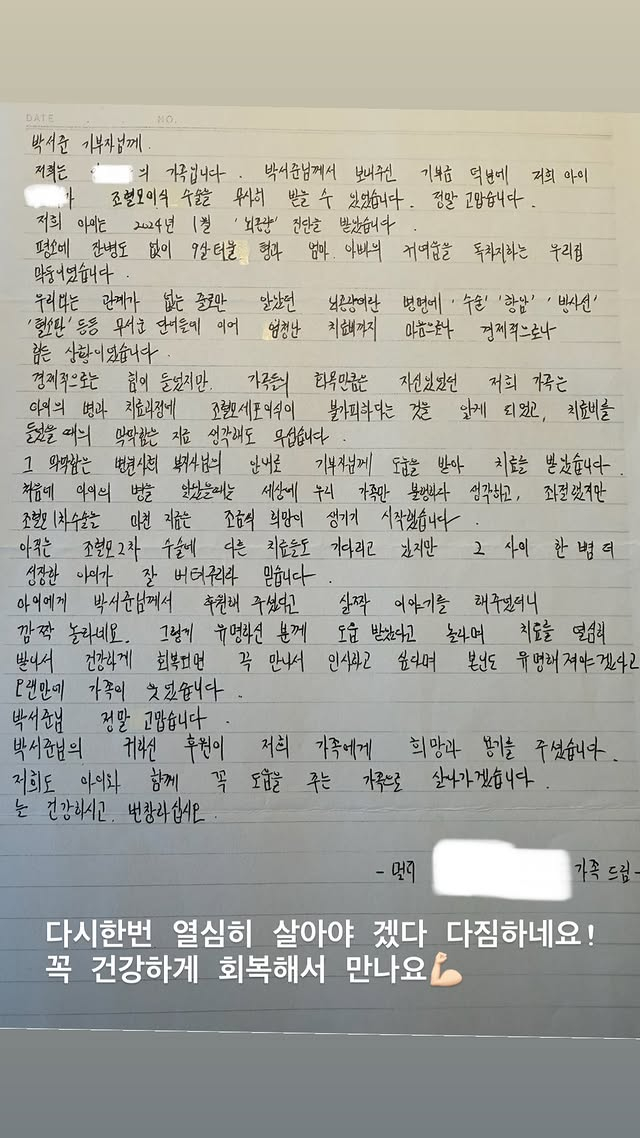 DATE . . NO.
박서준 기부자님께.
저희는 의 가족입니다. 박서준님께서 보내주신 기부금 덕분에 저희 아이
가 조혈모이식 수술을 무사히 받을 수 있었습니다. 정말 고맙습니다.
저희 아이는 2024년 1월 '뇌종양' 진단을 받았습니다.
평소에 잔병도 없이 9살 터울 형과 엄마 아빠의 귀여움을 독차지하는 우리집
막둥이였습니다.
우리와는 관계가 없는 줄로만 알았던 뇌종양이란 병명에 '수술' '항암' '방사선'
'혈소판' 등등 무서운 단어들에 이어 엄청난 치료비까지 마음으로나 경제적으로나
힘든 상황이었습니다.
경제적으로는 힘이 들었지만, 가족들의 화목만큼은 자신있었던 저희 가족은
아이의 병과 치료과정에 조혈모세포이식이 불가피하다는 것을 알게 되었고, 치료비를
들었을 때의 막막함은 지금 생각해도 무섭습니다.
그 막막함은 병원사회 복지사님의 안내로 기부자님께 도움을 받아 치료를 받았습니다.
처음에 아이의 병을 알았을때는 세상에 우리 가족만 불행하다 생각하고, 좌절했지만
조혈모 1차수술을 마친 지금은 조금씩 희망이 생기기 시작했습니다.
아직은 조혈모 2차 수술에 다른 치료들도 기다리고 있지만 그 사이 한 뼘 더
성장한 아이가 잘 버텨주리라 믿습니다.
아이에게 박서준님께서 후원해 주셨다고 살짝 이야기를 해주었더니
깜짝 놀라네요. 그렇게 유명하신 분께 도움 받았다고 놀라며 치료를 열심히
받아서 건강하게 회복되면 꼭 만나서 인사하고 싶다며 본인도 유명해져야겠다고
오랜만에 가족이 웃었습니다.
박서준님 정말 고맙습니다.
박서준님의 귀하신 후원이 저희 가족에게 희망과 용기를 주셨습니다.
저희도 아이와 함께 꼭 도움을 주는 가족으로 살아가겠습니다.
늘 건강하시고, 번창하십시오.
- 가족 드림-
다시한번 열심히 살아야 겠다 다짐하네요!
꼭 건강하게 회복해서 만나요💪🏻